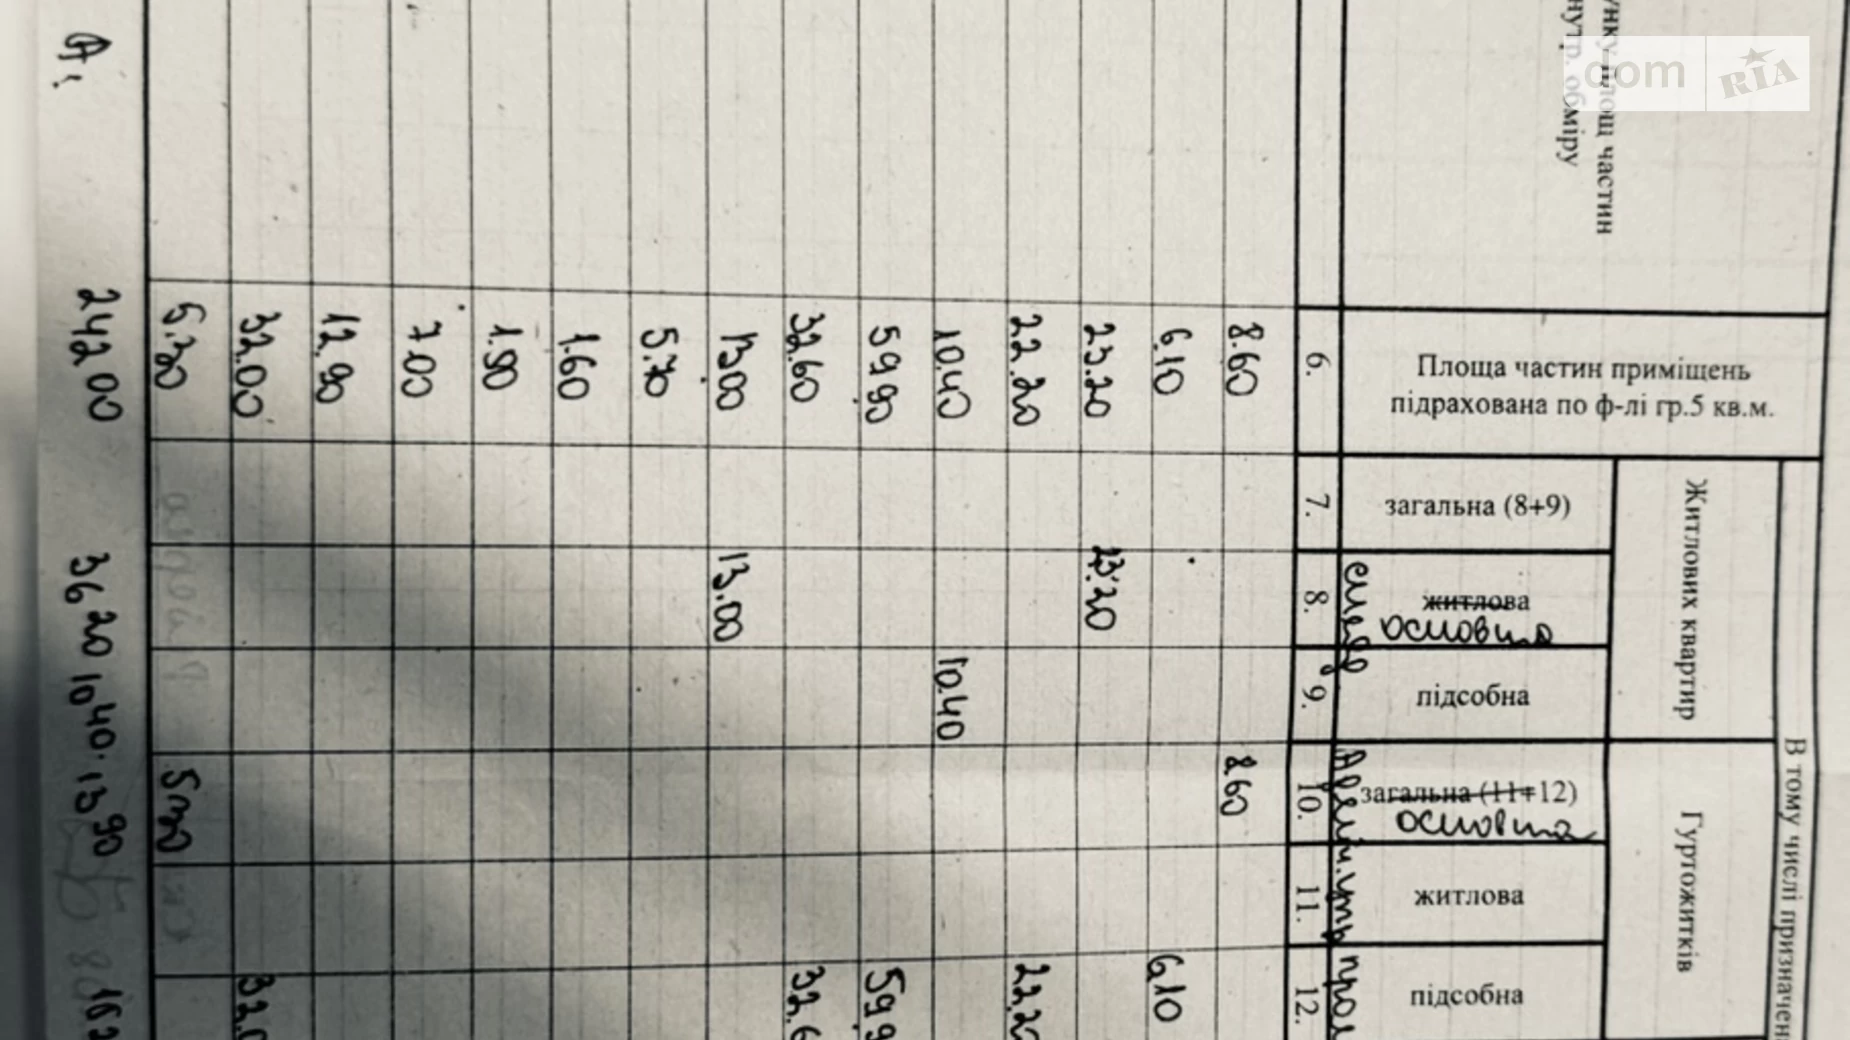 dom RIA
унку площ частин
нутр. обміру
Площа частин приміщень
підрахована по ф-лі гр.5 кв.м.
В тому числі призначен
Житлових квартир
Гуртожитків
загальна (8+9)
житлова
основна
підсобна
загальна (11+12)
основна
житлова
підсобна
склад
Адмін.упр
6. 7. 8. 9. 10. 11. 12.
8.60 8.60
6.10 6.10
23.20 23.20
22.20 22.2
10.40 10.40
59.90 59.9
32.60 32.6
13.00 13.00
5.70
1.60
1.90
7.00
12.90
32.00 32.0
242 00 36 20 10,40 13 90 162